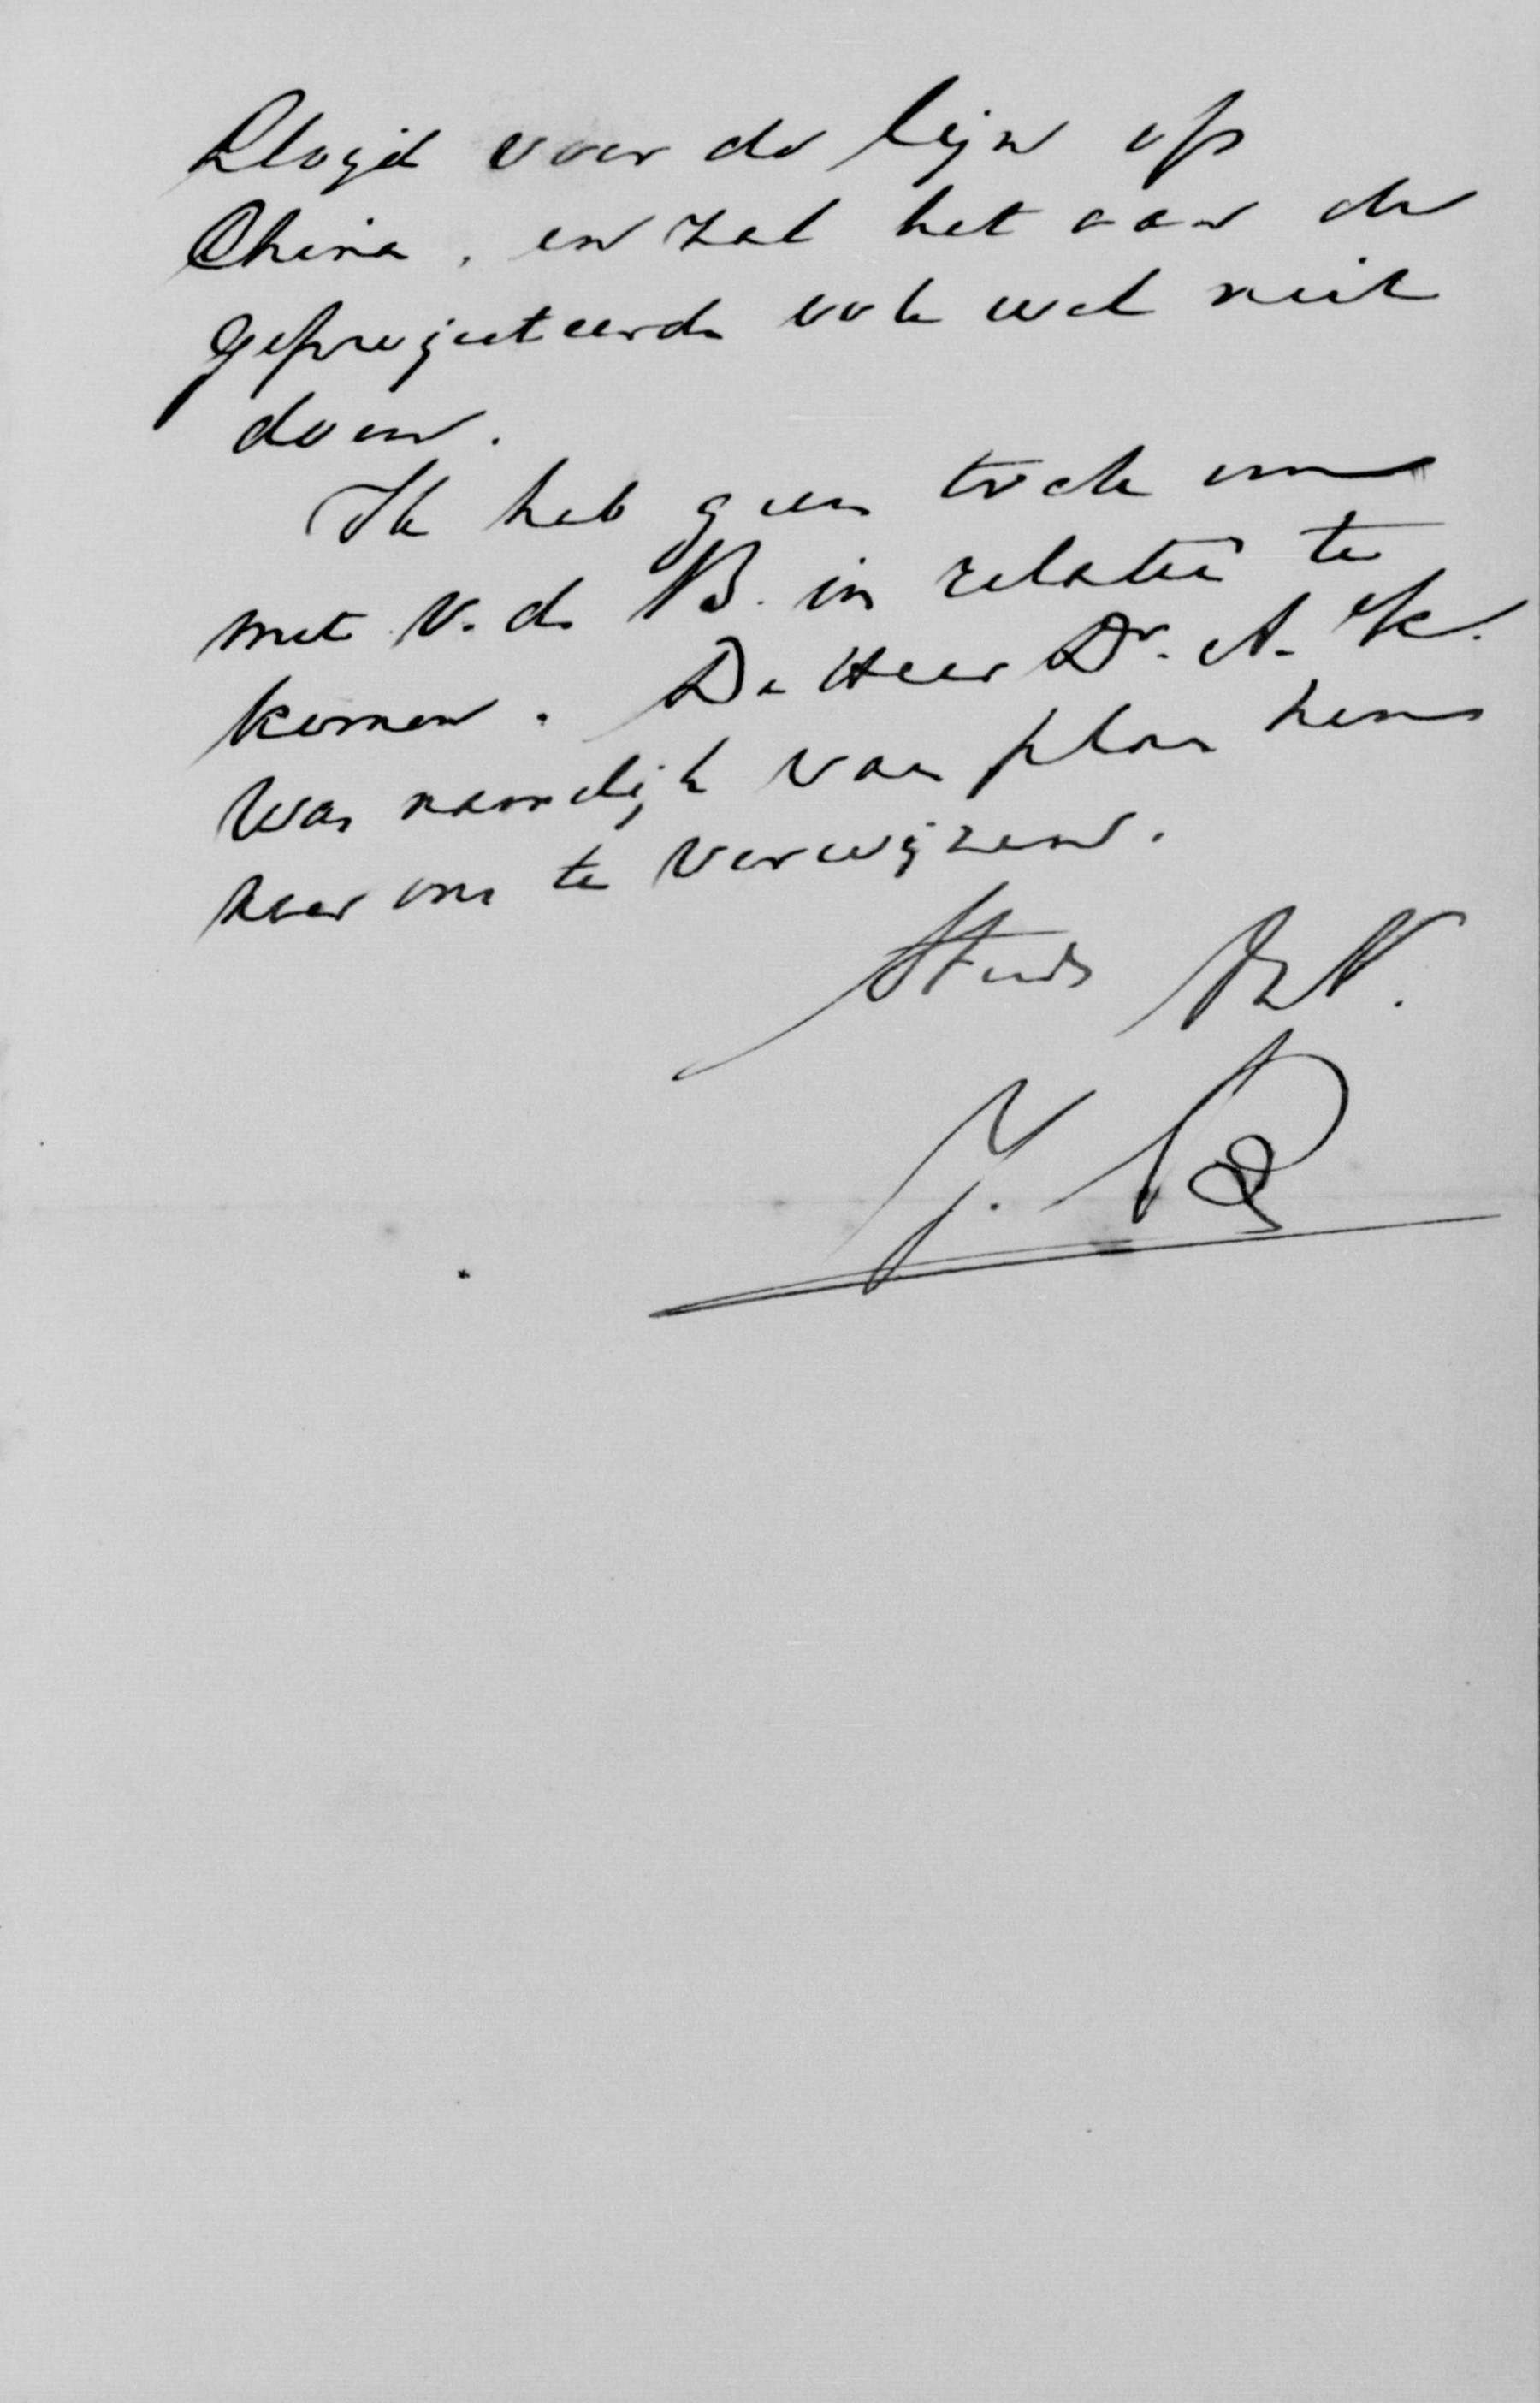 Lloyd voor de lijn op
China, en zal het aan de
geprojecteerde ook wel niet
doen.
Ik heb geen trek om
met v. d. B. in relatie te
komen. De Heer Dr. A. K.
was namelijk van plan hem
naar ons te verwijzen.
Steeds
J.